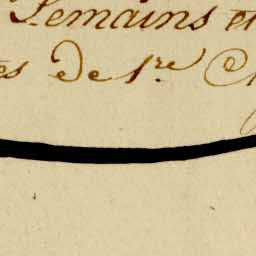 Semains et
es De 1.re C